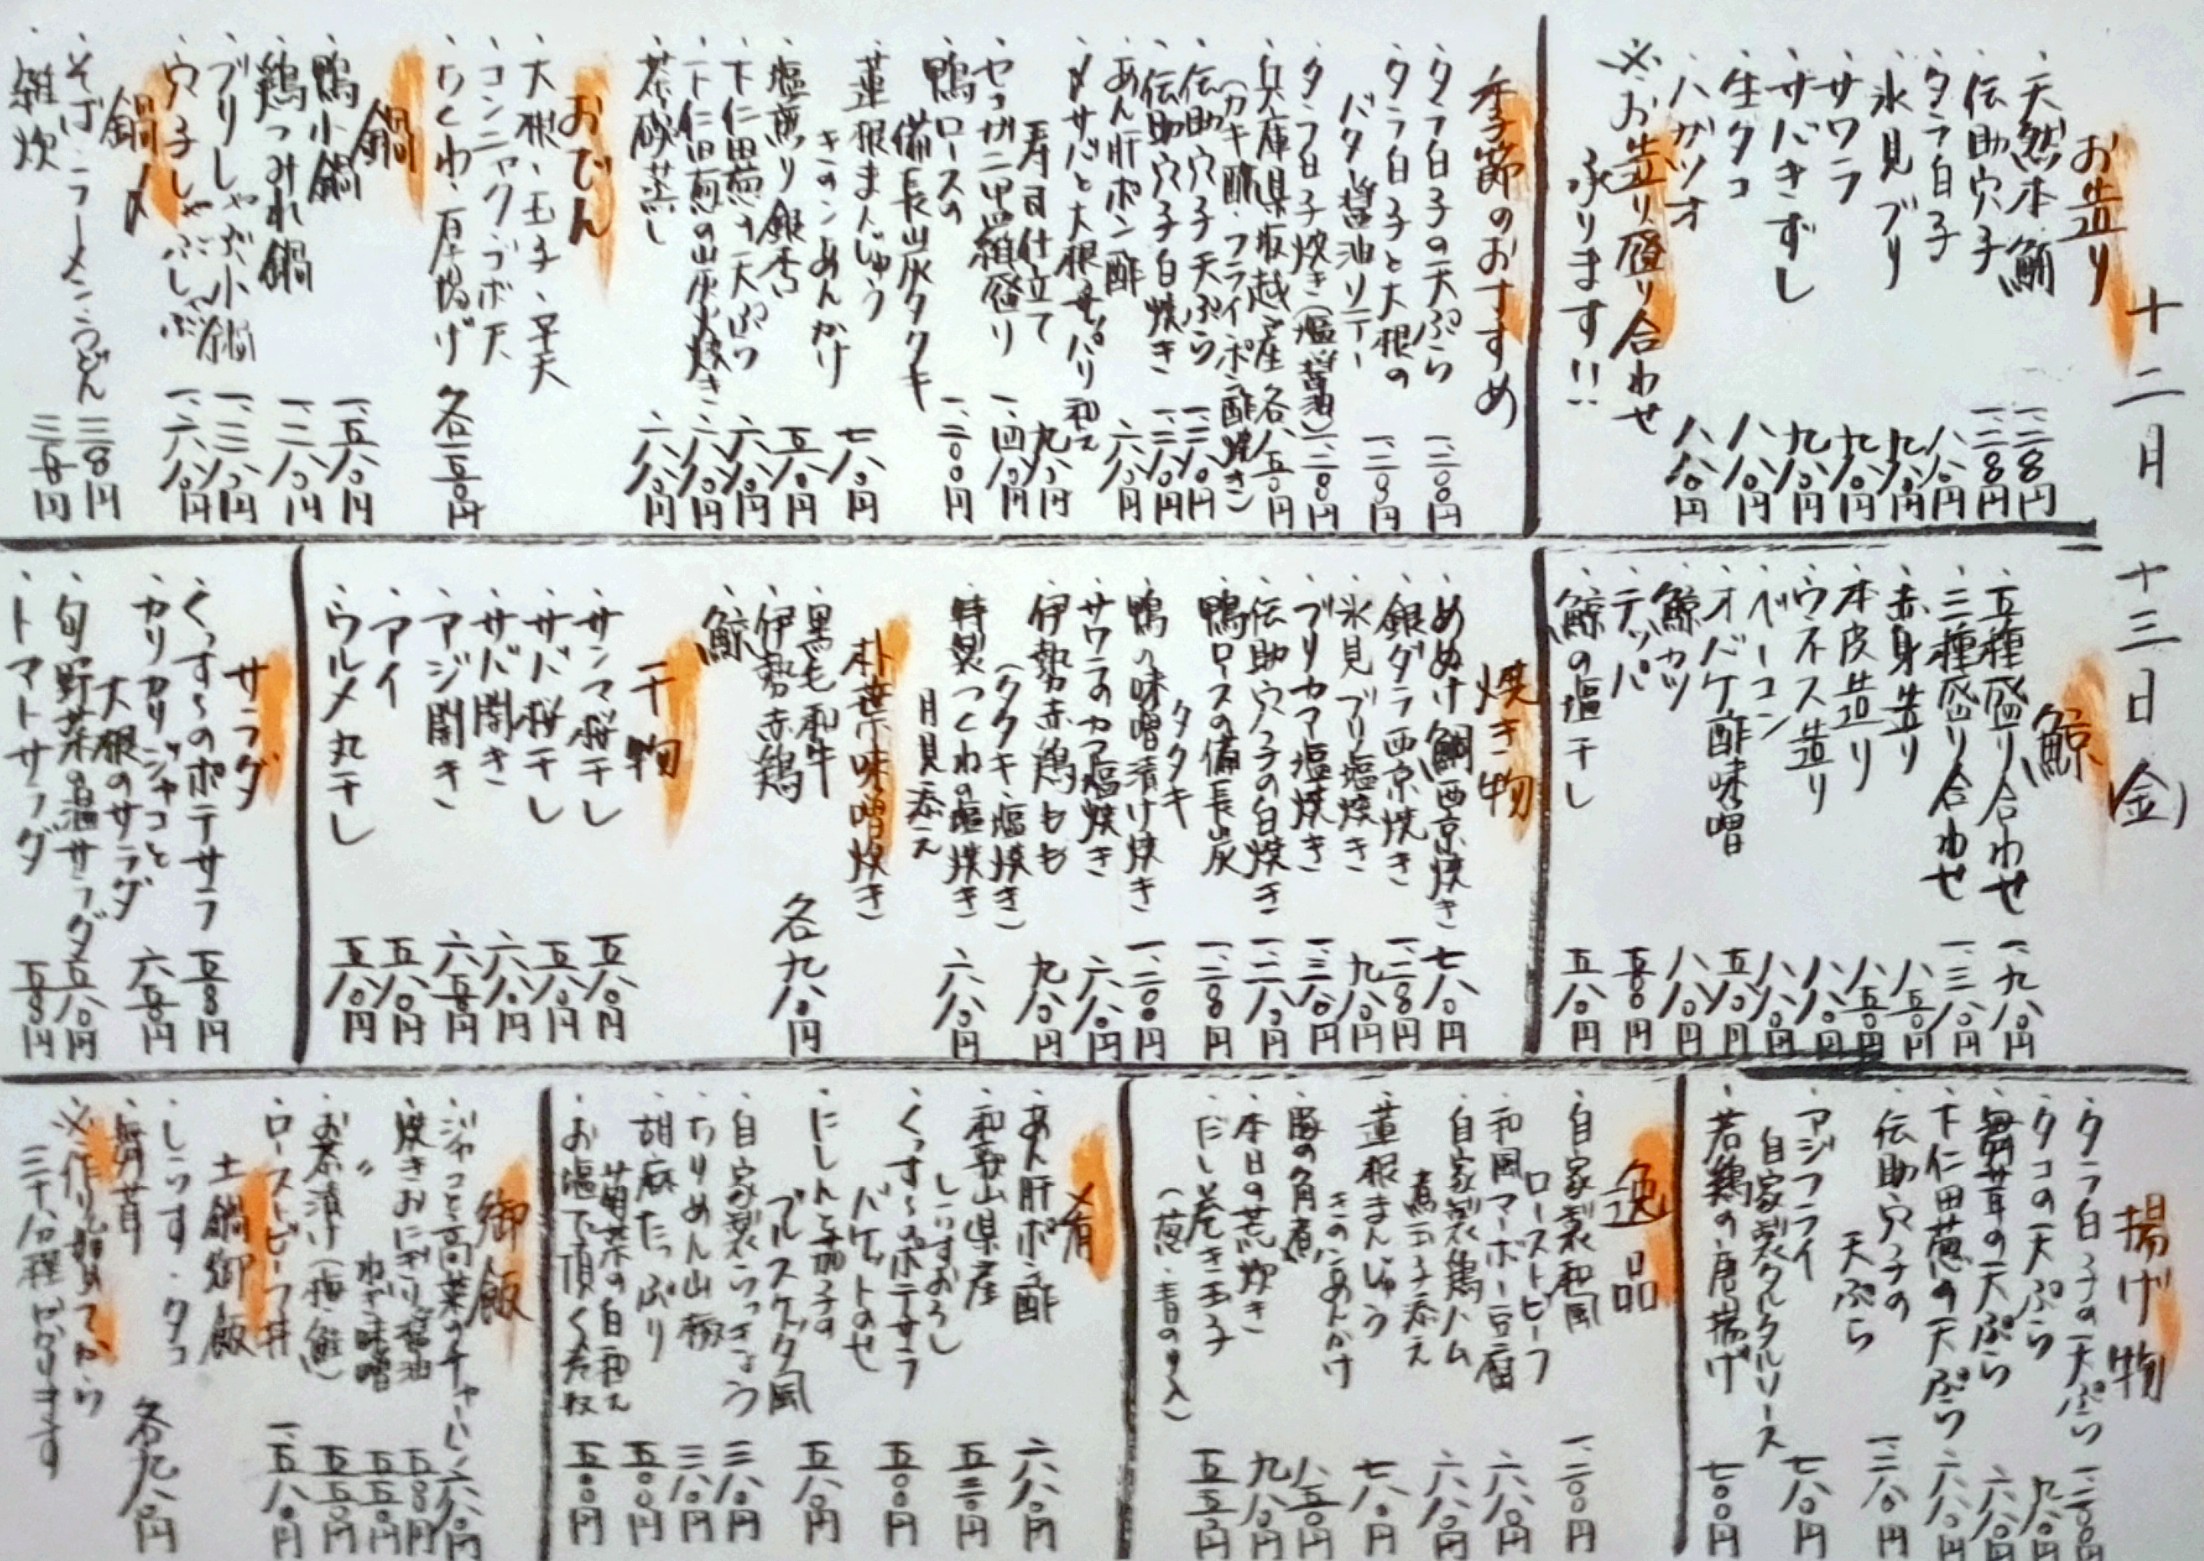 十二月十三日(金)
お造り
・天然本鮪 一、二八〇円
・伝助穴子 一、二八〇円
・タラ白子 八八〇円
・氷見ブリ 九八〇円
・サワラ 九八〇円
・サバきずし 九八〇円
・生タコ 八八〇円
・ハガツオ 八八〇円
※お造り盛り合わせ
承ります!!
季節のおすすめ
・タラ白子の天ぷら 一、二〇〇円
・タラ白子と大根の
バター醤油ソテー 一、二〇〇円
・タラ白子焼き(塩・醤油) 一、二〇〇円
・兵庫県坂越産 各八五〇円
(カキ酢・フライ・ポン酢・焼き)
・伝助穴子天ぷら 一、三八〇円
・伝助穴子白焼き 一、二八〇円
・あん肝ポン酢 六八〇円
・〆サバと大根サッパリ和え
寿司仕立て 九八〇円
・セコガニ甲羅盛り 一、四八〇円
・鴨ロースの
備長炭タタキ 一、二〇〇円
・蓮根まんじゅう
きのこあんかけ 七八〇円
・塩煎り銀杏 五八〇円
・下仁田葱の天ぷら 六八〇円
・下仁田葱の炭火焼き 六八〇円
・茶碗蒸し 六八〇円
おでん
・大根・玉子・平天
・コンニャク・ゴボ天
・ちくわ・厚揚げ 各二五〇円
鍋
・鴨小鍋 一、五八〇円
・鶏つみれ鍋 一、二八〇円
・ブリしゃぶ小鍋 一、三八〇円
・穴子しゃぶしゃぶ 一、六八〇円
鍋〆
・そば・ラーメン・うどん 三八〇円
・雑炊 三五〇円
鯨
・五種盛り合わせ 一、九八〇円
・三種盛り合わせ 一、三八〇円
・赤身造り 八五〇円
・本皮造り 八五〇円
・ウネス造り 八八〇円
・ベーコン 八八〇円
・オバケ酢味噌 五八〇円
・鯨カツ 八八〇円
・テッパ 五八〇円
・鯨の塩干し 五八〇円
焼き物
・めぬけ鯛西京焼き 七八〇円
・銀ダラ西京焼き 一、二八〇円
・氷見ブリ塩焼き 九八〇円
・ブリカマ塩焼き 一、三八〇円
・伝助穴子の白焼き 一、二八〇円
・鴨ロースの備長炭
タタキ 一、二〇〇円
・鴨の味噌漬け焼き 一、二〇〇円
・サワラのカマ塩焼き 六八〇円
・伊勢赤鶏もも
(タタキ・塩焼き) 九八〇円
・特製つくねの塩焼き
月見添え 六八〇円
朴葉味噌焼き
・黒毛和牛
・伊勢赤鶏
・鯨
各九八〇円
干物
・サンマ桜干し 五八〇円
・サバ桜干し 五八〇円
・サバ開き 六八〇円
・アジ開き 六五〇円
・アイ 五八〇円
・ウルメ丸干し 五八〇円
サラダ
・くっす〜のポテサラ 五〇〇円
・カリカリジャコと
大根のサラダ 六五〇円
・旬野菜の温サラダ 五八〇円
・トマトサラダ 五〇〇円
揚げ物
・タラ白子の天ぷら 一、二〇〇円
・タコの天ぷら 九八〇円
・舞茸の天ぷら 六八〇円
・下仁田葱の天ぷら 六八〇円
・伝助穴子の
天ぷら 一、三八〇円
・アジフライ
自家製タルタルソース 七八〇円
・若鶏の唐揚げ 七〇〇円
逸品
・自家製和風
ローストビーフ 一、二〇〇円
・和風マーボー豆腐 六八〇円
・自家製鶏ハム
煮玉子添え 六八〇円
・蓮根まんじゅう
きのこあんかけ 七八〇円
・豚の角煮 八五〇円
・本日の荒炊き 九八〇円
・だし巻き玉子
(葱・青のり入) 五五〇円
肴
・あん肝ポン酢 六八〇円
・和歌山県産
しらすおろし 五三〇円
・くっす〜のポテサラ
バケットのせ 五〇〇円
・にしんと茄子の
ブルスケッタ風 五八〇円
・自家製らっきょう 三八〇円
・ちりめん山椒 三八〇円
・胡麻たっぷり
菊菜の白和え 五〇〇円
・お塩で頂く冷奴 五〇〇円
御飯
・ジャコと高菜のチャーハン 六八〇円
・焼きおにぎり醤油 五〇〇円
・〃 ねぎ味噌 五五〇円
・お茶漬け(梅・鮭) 五五〇円
・ローストビーフ丼 一、五八〇円
土鍋御飯
・しらす・タコ
・舞茸 各九八〇円
※作り始めてから
三十分程かかります